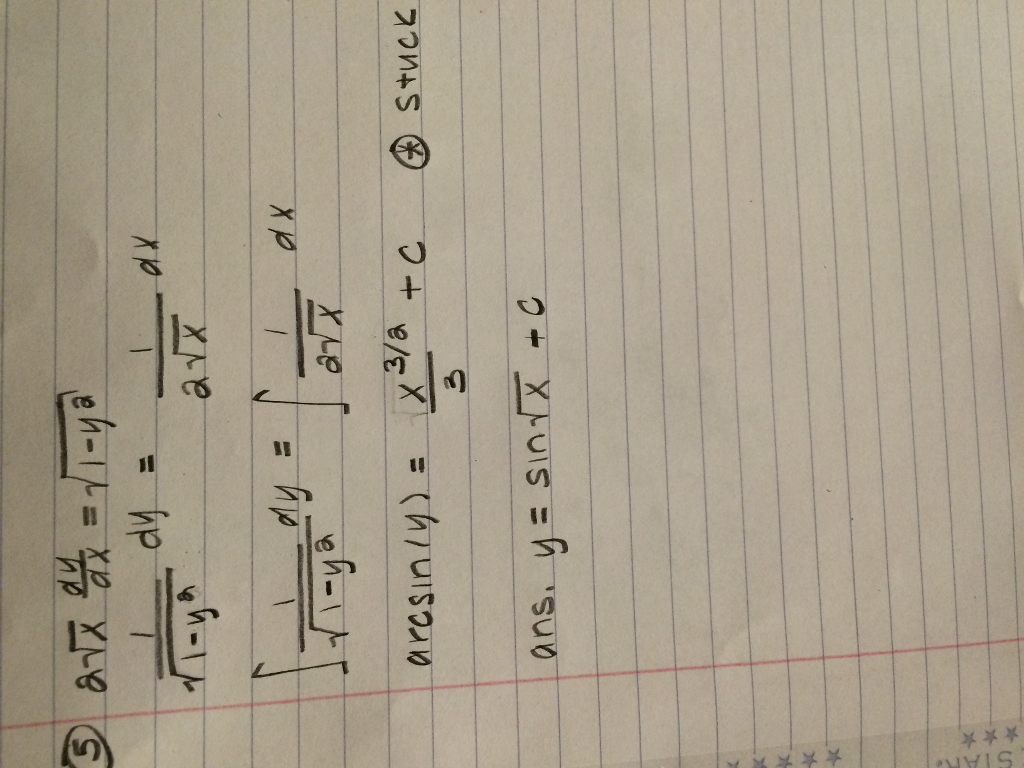 ⑤ 2√x dy/dx = √(1-y²)
1/√(1-y²) dy = 1/(2√x) dx
∫ 1/√(1-y²) dy = ∫ 1/(2√x) dx
arcsin(y) = x^(3/2)/3 + C ⊛ stuck
ans. y = sin√x + C
STAR.